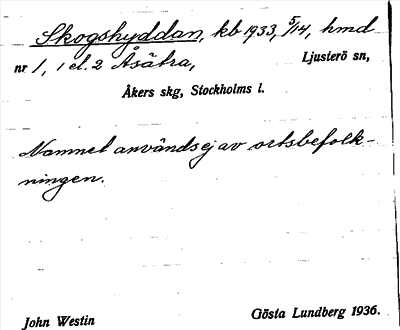 Skogshyddan, kb 1933, 5/14, hmd
nr 1, 1 el. 2 Åsätra, Ljusterö sn,
Åkers skg, Stockholms l.
Namnet användes ej av ortsbefolk-
ningen.
John Westin Gösta Lundberg 1936.